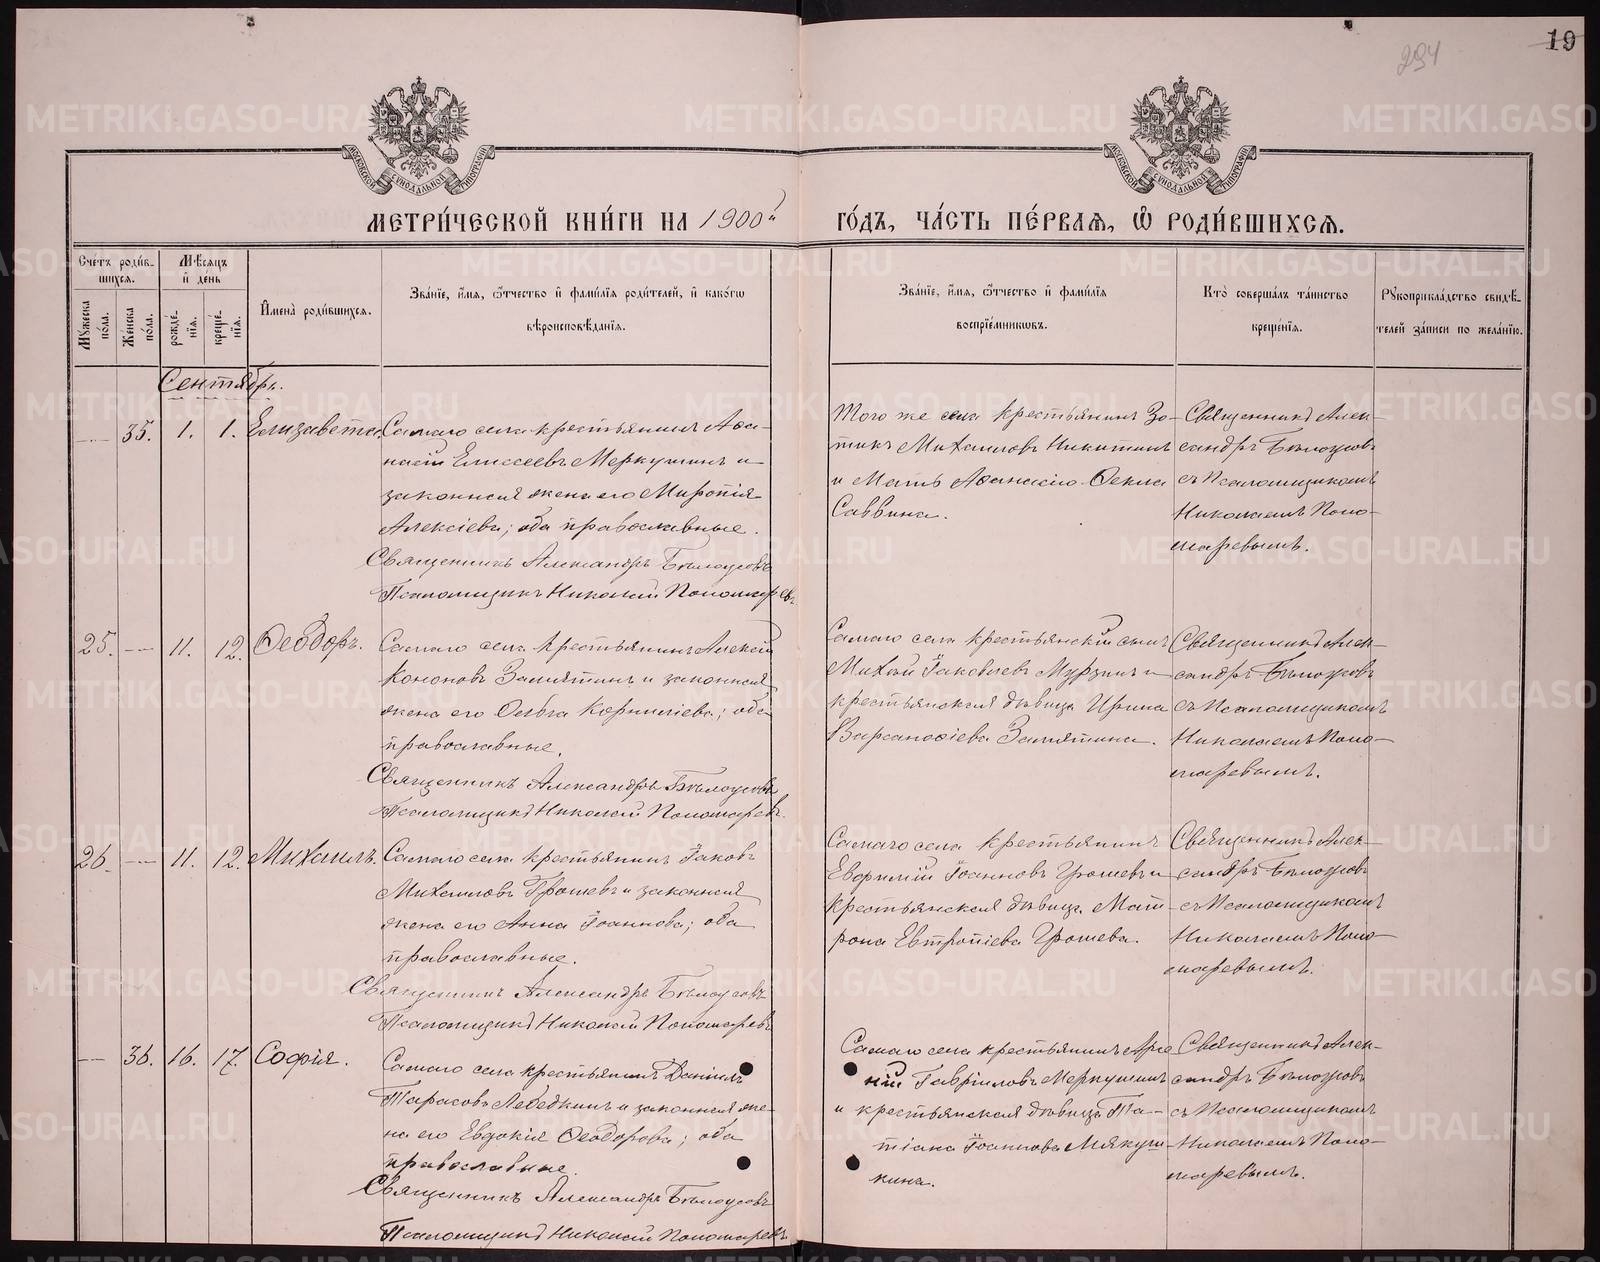 19
294
МОСКОВСКОЙ СѴНОДАЛЬНОЙ ТИПОГРАФІИ
МОСКОВСКОЙ СѴНОДАЛЬНОЙ ТИПОГРАФІИ
МЕТРИ́ЧЕСКОЙ КНИ́ГИ НА 1900й ГО́ДЪ, ЧА́СТЬ ПЕ́РВАѦ, Ѡ҆ РОДИ́ВШИХСѦ.
Сче́тъ роди́в-
шихсѧ.
Мꙋ́жеска по́ла.
Же́нска по́ла.
Мѣ́сѧцъ
и҆ де́нь
рожде́-
нїѧ.
креще́-
нїѧ.
И҆мена̀ роди́вшихсѧ.
Зва́нїе, и҆́мѧ, ѻ҆́тчество и҆ фами́лїѧ роди́телей, и҆ како́гѡ
вѣроисповѣ́данїѧ.
Зва́нїе, и҆́мѧ, ѻ҆́тчество и҆ фами́лїѧ
воспрїе́мникѡвъ.
Кто̀ соверша́лъ та́инство
креще́нїѧ.
Рꙋкоприкла́дство свидѣ́-
телей за́писи по жела́нїю.
Сентябрь.
— 35. 1. 1. Елизавета.
Самаго села крестьянинъ Аѳа-
насій Елисеевъ Меркушинъ и
законная жена его Миропія
Алексіева; оба православные.
Священникъ Александръ Бѣлоусовъ
Псаломщикъ Николай Пономаревъ.
Того же села крестьянинъ Зо-
тикъ Михаиловъ Никитинъ
и Мать Аѳанасія Ѳекла
Саввина.
Священникъ Алек-
сандръ Бѣлоусовъ
съ Псаломщикомъ
Николаемъ Поно-
маревымъ.
25. — 11. 12. Ѳеодоръ.
Самаго села крестьянинъ Алексій
Кононовъ Замятинъ и законная
жена его Ольга Корнилiева; оба
православные.
Священникъ Александръ Бѣлоусовъ
Псаломщикъ Николай Пономаревъ.
Самаго села крестьянскій сынъ
Михаил Іаковлевъ Мурзинъ и
крестьянская дѣвица Ирина
Варсанофіева Замятина.
Священникъ Алек-
сандръ Бѣлоусовъ
съ Псаломщикомъ
Николаемъ Поно-
маревымъ.
26. — 11. 12. Михаилъ.
Самаго села крестьянинъ Іаковъ
Михаиловъ Грошевъ и законная
жена его Анна Іоаннова; оба
православные.
Священникъ Александръ Бѣлоусовъ
Псаломщикъ Николай Пономаревъ
Самаго села крестьянинъ
Евфимій Іоанновъ Грошевъ и
крестьянская дѣвица Мат-
рона Евтропіева Грошева.
Священникъ Алек-
сандръ Бѣлоусовъ
съ Псаломщикомъ
Николаемъ Поно-
маревымъ.
— 36. 16. 17. Софія.
Самаго села крестьянинъ Даніилъ
Тарасовъ Лебедкинъ и законная же-
на его Евдокія Ѳеодорова; оба
православные.
Священникъ Александръ Бѣлоусовъ
Псаломщикъ Николай Пономаревъ
Самаго села крестьянинъ Арсе
ній Гавріиловъ Меркушинъ
и крестьянская дѣвица Та-
тіана Іоаннова Мякуш-
кина.
Священникъ Алек-
сандръ Бѣлоусовъ
съ Псаломщикомъ
Николаемъ Поно-
маревымъ.
METRIKI.GASO-URAL.RU